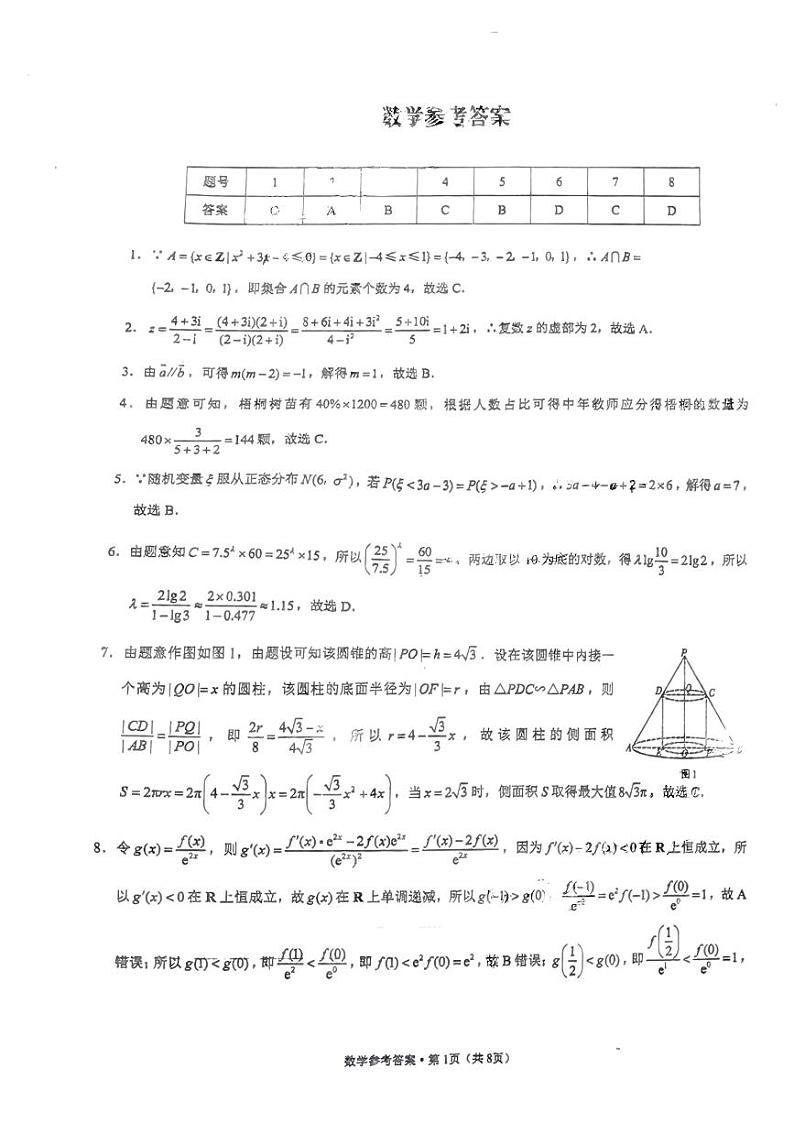 数学参考答案
题号 1 4 5 6 7 8
答案 C A B C B D C D
1. ∵A={x∈Z|x²+3x-4≤0}={x∈Z|-4≤x≤1}={-4, -3, -2, -1, 0, 1}, ∴A∩B=
{-2, -1, 0, 1}, 即集合A∩B的元素个数为4, 故选C.
2. z=(4+3i)/(2-i)=((4+3i)(2+i))/((2-i)(2+i))=(8+6i+4i+3i²)/(4-i²)=(5+10i)/5=1+2i, ∴复数z的虚部为2, 故选A.
3. 由a⃗//b⃗, 可得m(m-2)=-1, 解得m=1, 故选B.
4. 由题意可知, 梧桐树苗有40%×1200=480颗, 根据人数占比可得中年教师应分得梧桐的数量为
480×3/(5+3+2)=144颗, 故选C.
5. ∵随机变量ξ服从正态分布N(6, σ²), 若P(ξ<3a-3)=P(ξ>-a+1), =2×6, 解得a=7,
故选B.
6. 由题意知C=7.5^λ×60=25^λ×15, 所以(25/7.5)^λ=60/15= 两边取以10为底的对数, 得λlg(10/3)=2lg2, 所以
λ=2lg2/(1-lg3)≈(2×0.301)/(1-0.477)≈1.15, 故选D.
7. 由题意作图如图1, 由题设可知该圆锥的高|PO|=h=4√3. 设在该圆锥中内接一
个高为|QO|=x的圆柱, 该圆柱的底面半径为|OF|=r, 由△PDC∽△PAB, 则
|CD|/|AB|=|PQ|/|PO|, 即2r/8=(4√3-x)/(4√3), 所以r=4-(√3/3)x, 故该圆柱的侧面积
S=2πrx=2π(4-(√3/3)x)x=2π(-(√3/3)x²+4x), 当x=2√3时, 侧面积S取得最大值8√3π, 故选C.
P
D Q C
A E O F
图1
8. 令g(x)=f(x)/e^(2x), 则g′(x)=(f′(x)•e^(2x)-2f(x)e^(2x))/(e^(2x))²=(f′(x)-2f(x))/e^(2x), 因为f′(x)-2f(x)<0在R上恒成立, 所
以g′(x)<0在R上恒成立, 故g(x)在R上单调递减, 所以g(-1)>g(0) f(-1)/e^(-2)=e²f(-1)>f(0)/e⁰=1, 故A
错误; 所以g(1)<g(0), 即f(1)/e²<f(0)/e⁰, 即f(1)<e²f(0)=e², 故B错误; g(1/2)<g(0), 即f(1/2)/e¹<f(0)/e⁰=1,
数学参考答案•第1页（共8页）